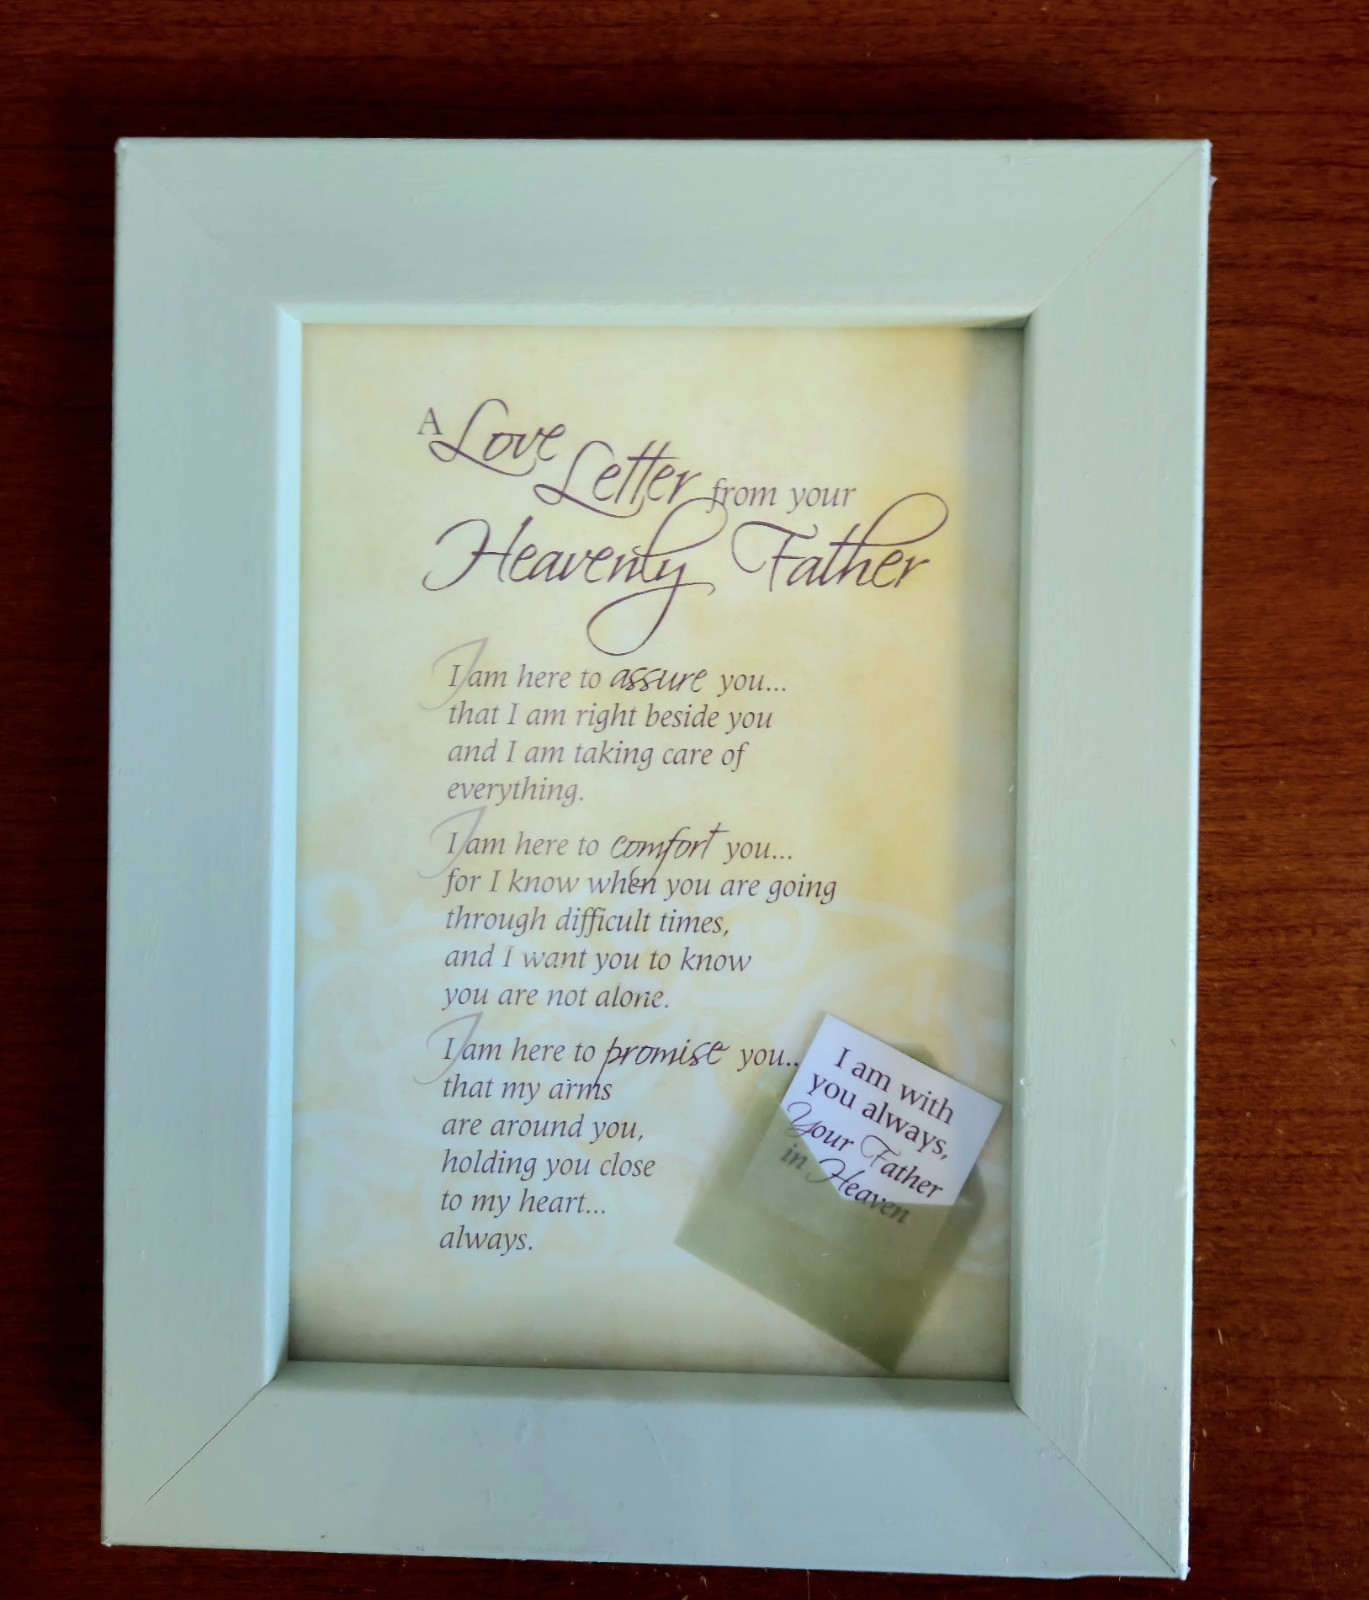 A Love
Letter from your
Heavenly Father
I am here to assure you...
that I am right beside you
and I am taking care of
everything.
I am here to comfort you...
for I know when you are going
through difficult times,
and I want you to know
you are not alone.
I am here to promise you..
that my arms
are around you,
holding you close
to my heart...
always.
I am with
you always,
Your Father
in Heaven